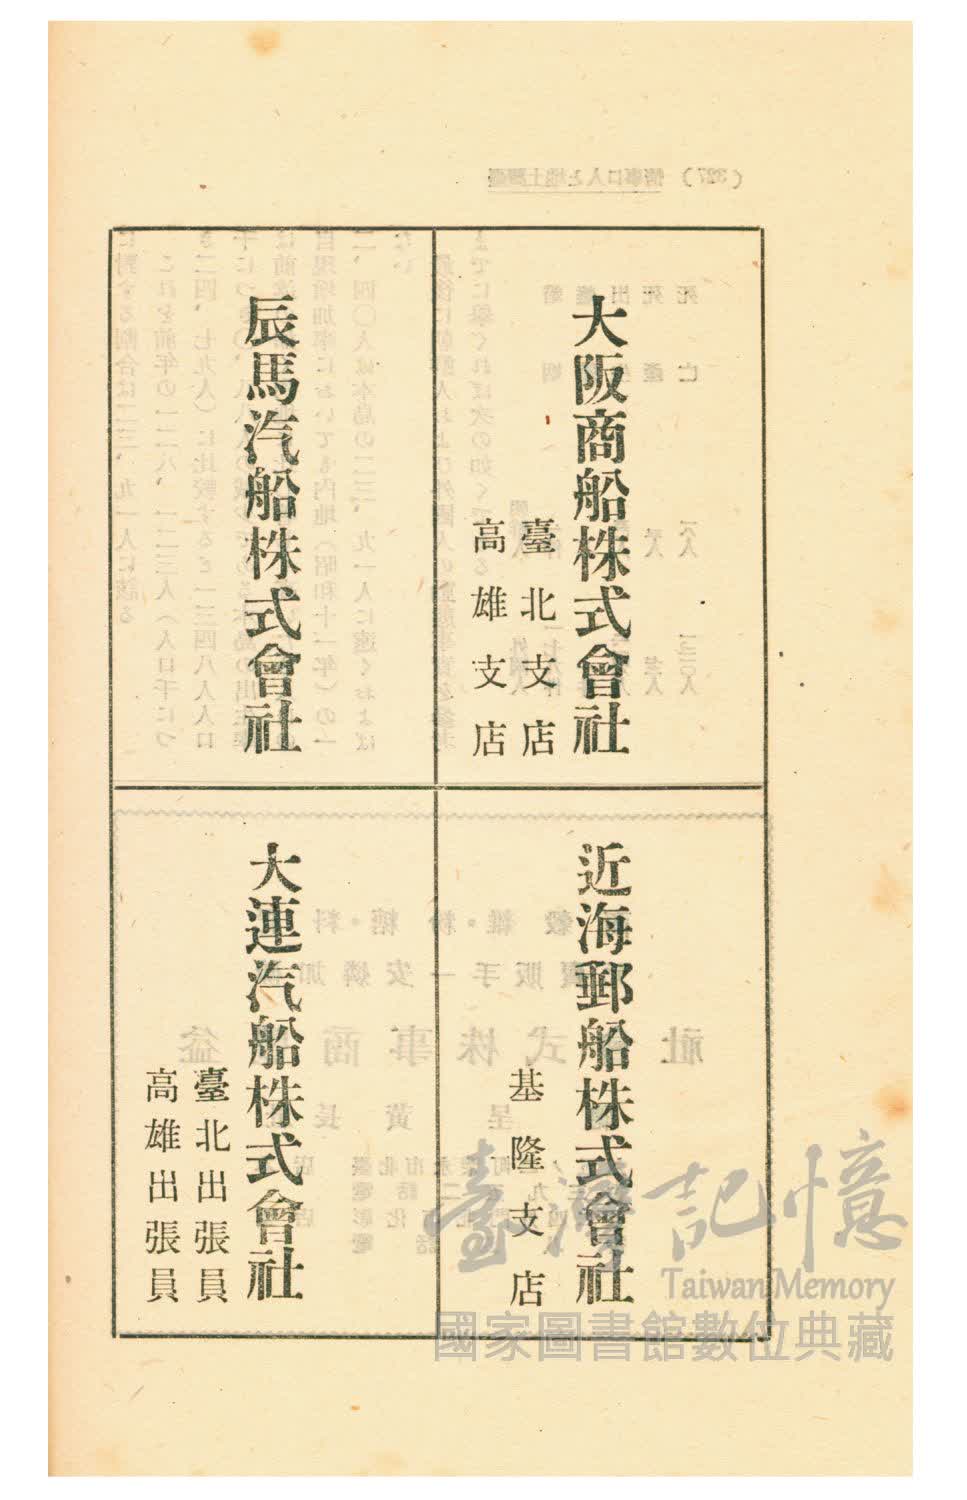 大阪商船株式會社
臺北支店
高雄支店
辰馬汽船株式會社
近海郵船株式會社
基隆支店
大連汽船株式會社
臺北出張員
高雄出張員
臺灣記憶
Taiwan Memory
國家圖書館數位典藏